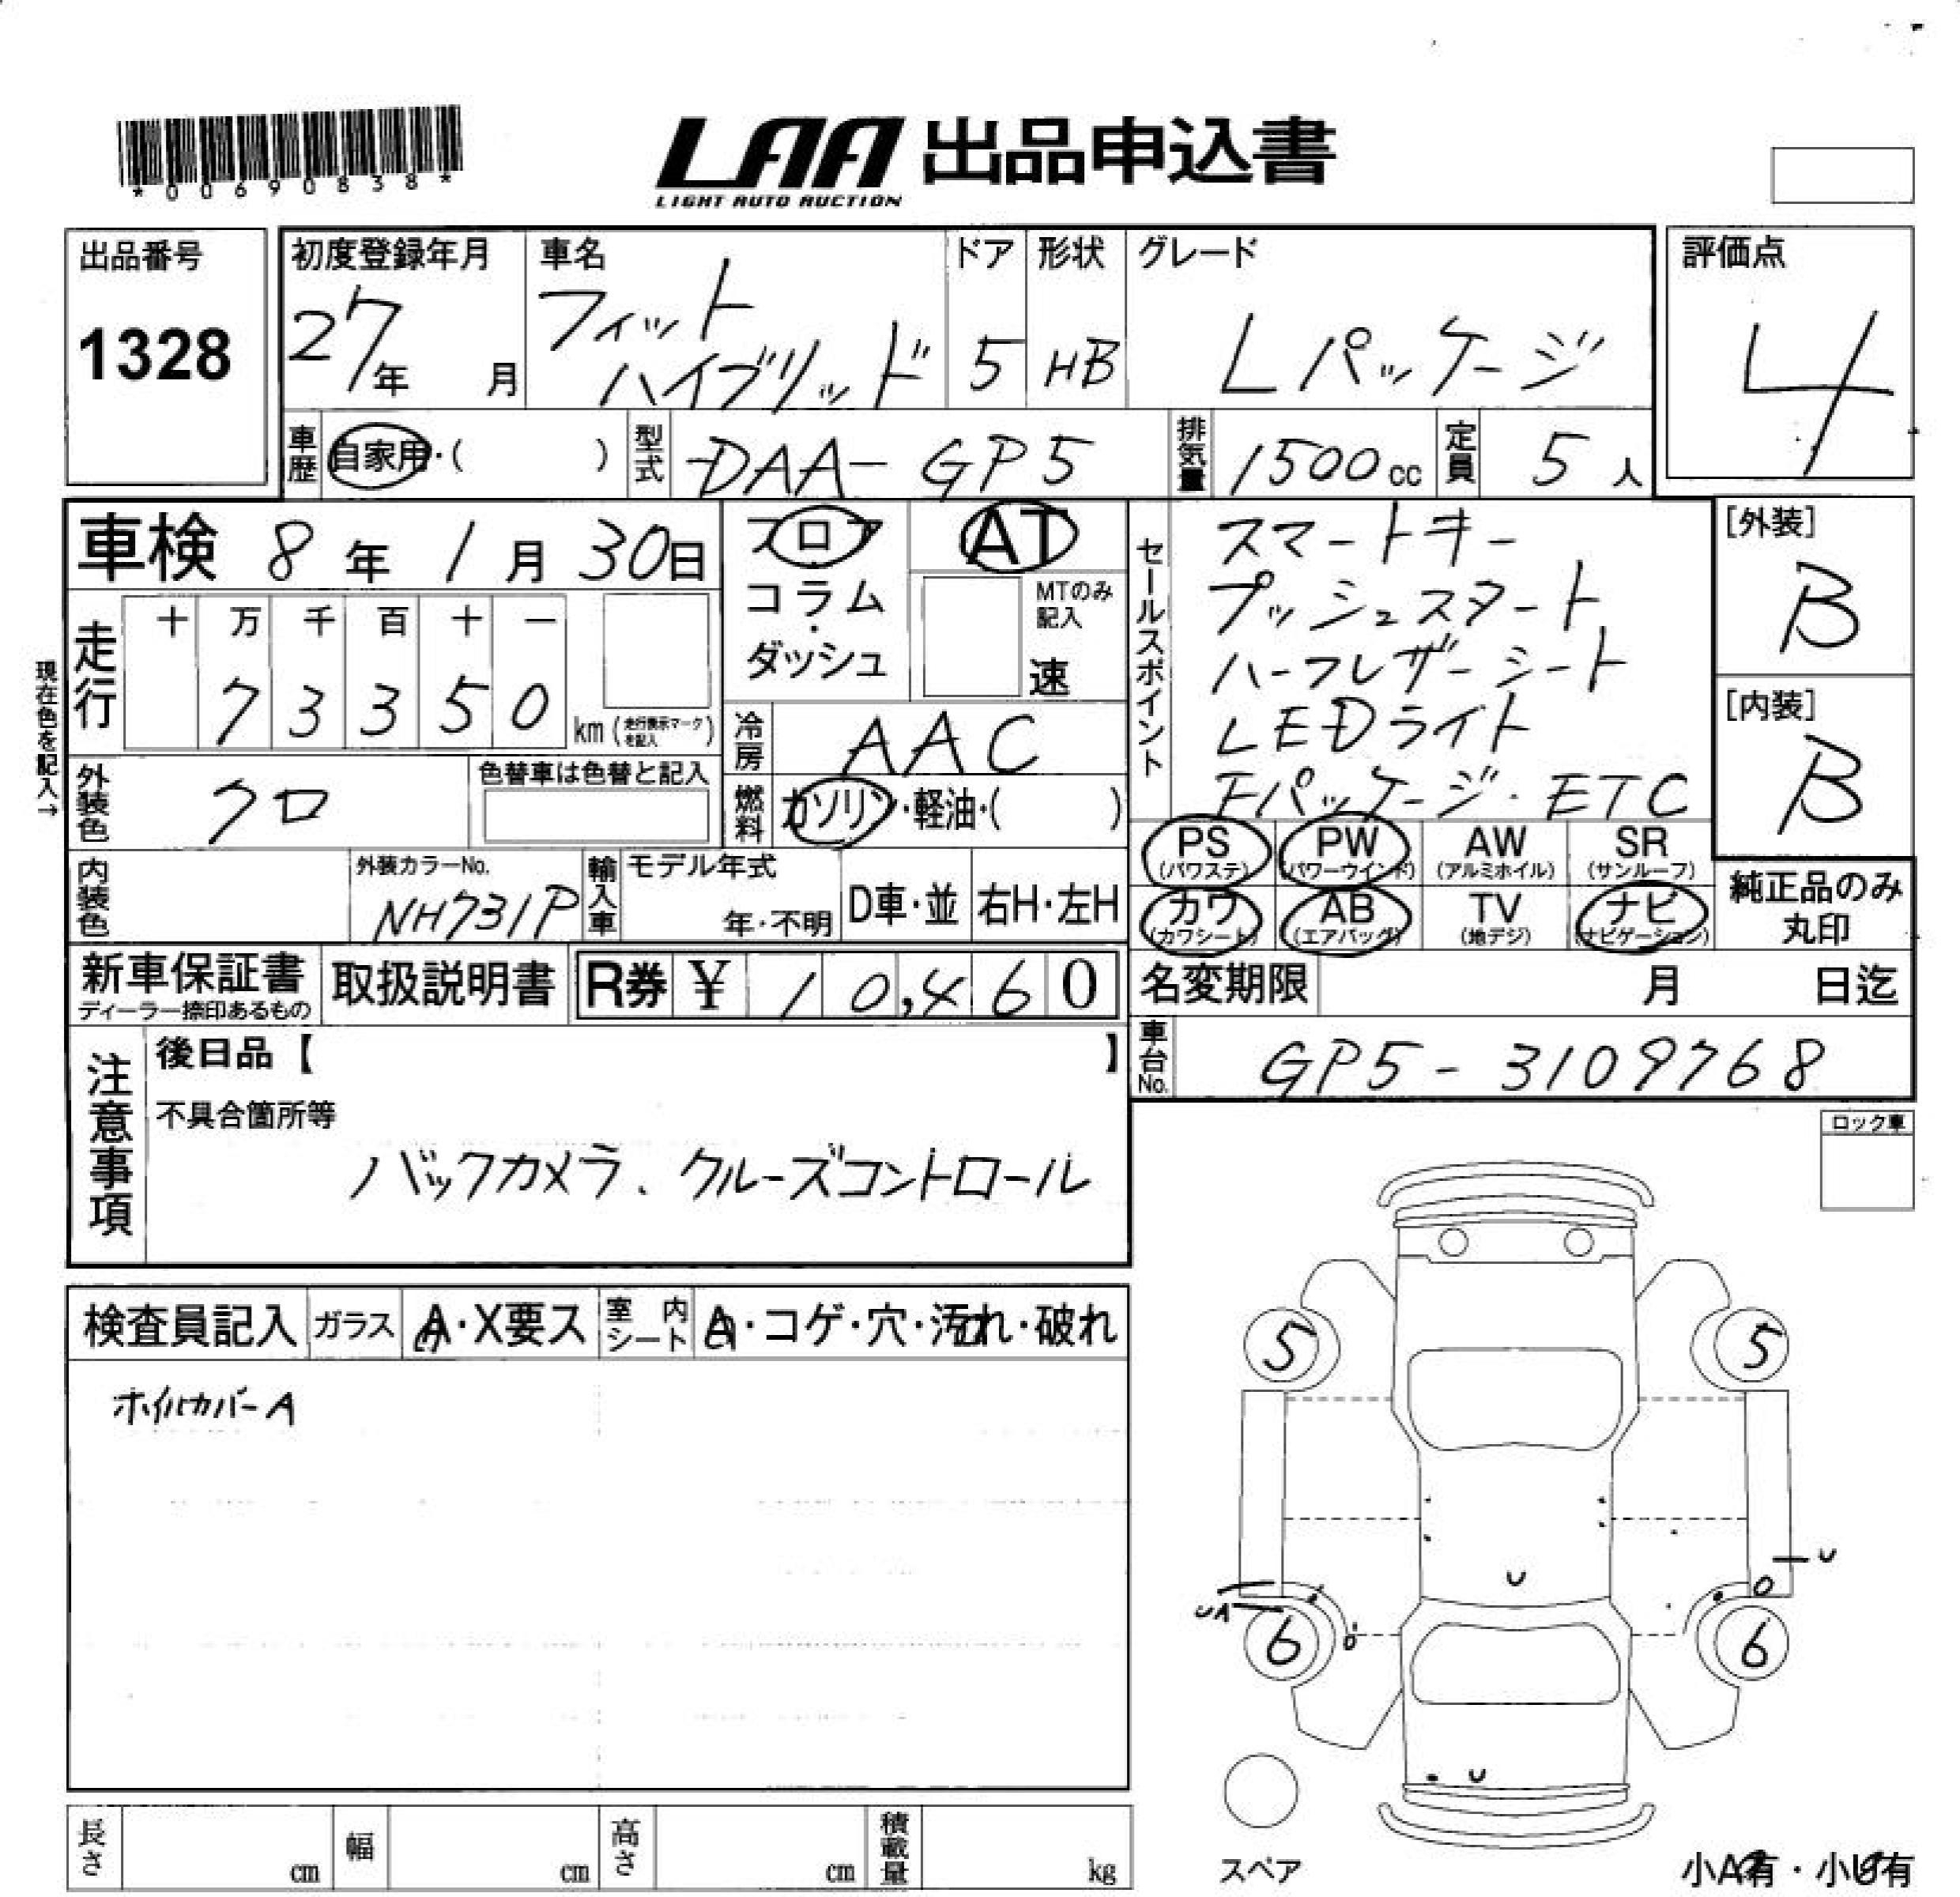 *00690838*
LAA 出品申込書
LIGHT AUTO AUCTION
出品番号
1328
初度登録年月
27年 月
車名
フィット
ハイブリッド
ドア
5
形状
HB
グレード
Lパッケージ
評価点
4
車歴
自家用・( )
型式
DAA-GP5
排気量
1500cc
定員
5人
車検 8年 1月 30日
フロア
コラム
・
ダッシュ
AT
MTのみ
記入
速
セールスポイント
スマートキー
プッシュスタート
ハーフレザーシート
LEDライト
Fパッケージ・ETC
[外装]
B
[内装]
B
現在色を記入→
走行
十 万 千 百 十 一
7 3 3 5 0
km (走行表示マークを記入)
冷房
AAC
外装色
クロ
色替車は色替と記入
燃料
ガソリン・軽油・( )
PS
(パワステ)
PW
(パワーウインド)
AW
(アルミホイル)
SR
(サンルーフ)
カワ
(カワシート)
AB
(エアバッグ)
TV
(地デジ)
ナビ
(ナビゲーション)
純正品のみ
丸印
内装色
外装カラーNo.
NH731P
輸入車
モデル年式
年・不明
D車・並
右H・左H
新車保証書
ディーラー捺印あるもの
取扱説明書
R券 ¥ 10,460
名変期限 月 日迄
車台No.
GP5-3109768
注意事項
後日品【 】
不具合箇所等
バックカメラ、クルーズコントロール
ロック車
検査員記入
ガラス
A・X要ス
室内
シート
A・コゲ・穴・汚れ・破れ
ホイルカバーA
5
5
U
U
UA
6
6
U
スペア
小A有・小U有
長さ cm
幅 cm
高さ cm
積載量 kg